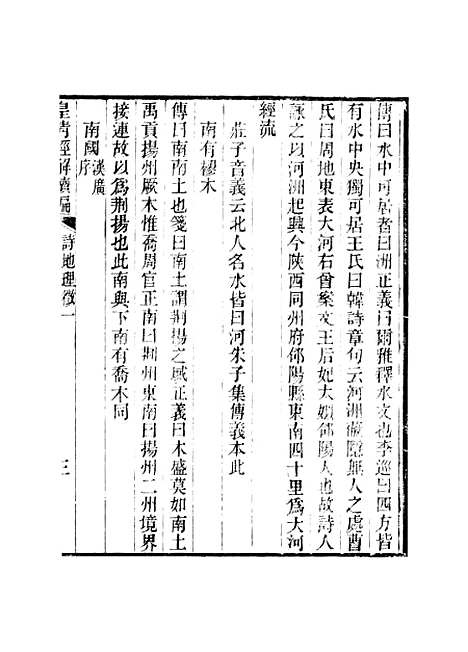 傳曰水中可居者曰洲正義曰爾雅釋水文也李巡曰四方皆
有水中央獨可居王氏曰韓詩章句云河洲蔽隱無人之處酉
氏曰周地東表大河右曾案文王后妃大姒郃陽人也故詩人
詠之以河洲起興今陝西同州府郃陽縣東南四十里爲大河
經流
莊子音義云北人名水皆曰河朱子集傳義本此
南有樛木
傳曰南南土也箋曰南土謂荆揚之域正義曰木盛莫如南土
禹貢揚州厥木惟喬周官正南曰荆州東南曰揚州二州境界
接連故以爲荆揚也此南與下南有喬木同
南國漢廣序
皇清經解續編 詩地理徵一 三